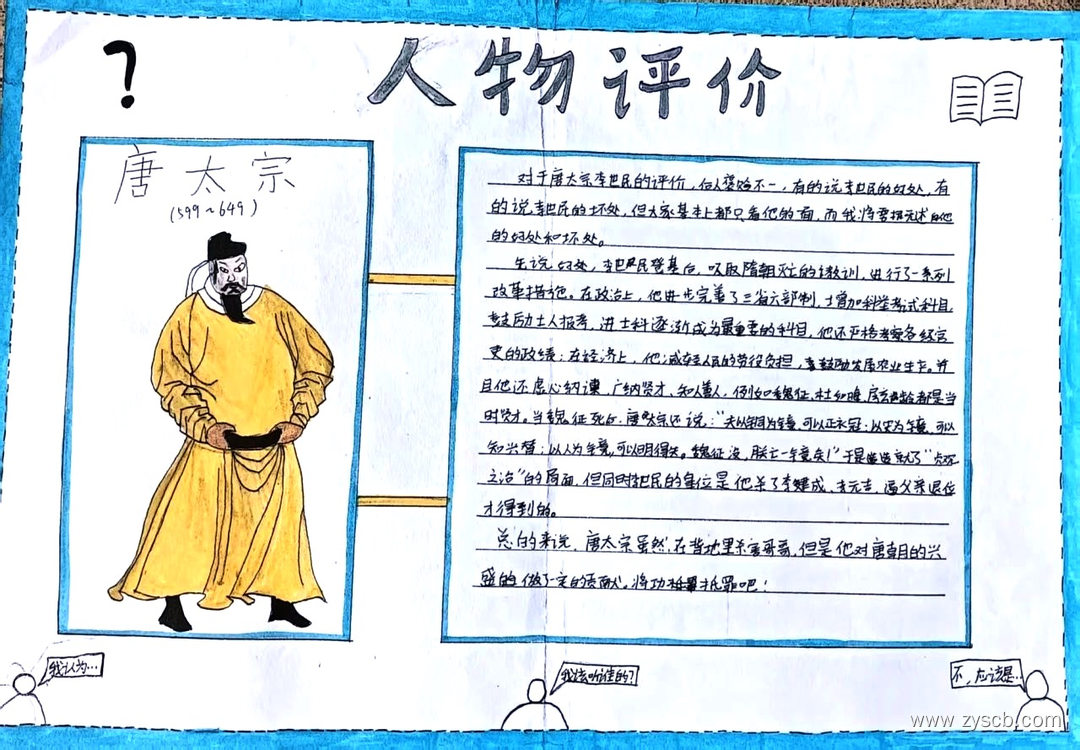 ?
人物评价
唐太宗
(599~649)
对于唐太宗李世民的评价,众人褒贬不一,有的说李世民的好处,有
的说李世民的坏处,但大家基本上都只看他的面,而我将要描述他
的好处和坏处。
先说好处,李世民登基后,吸取隋朝灭亡的教训,进行了一系列
改革措施。在政治上,他进步完善了三省六部制,增加科举考试科目,
鼓励士人报考,进士科逐渐成为最重要的科目,他还严格考察各级官
吏的政绩;在经济上,他减轻人民的劳役负担,鼓励发展农业生产。并
且他还虚心纳谏,广纳贤才、知人善人,例如魏征、杜如晦、房玄龄都是当
时贤才。当魏征死后,唐太宗还说:“夫以铜为镜,可以正衣冠;以史为镜,可以
知兴替;以人为镜,可以明得失。魏征没,朕亡一镜矣!”于是造就了“贞观
之治”的局面,但同时李世民的皇位是他杀了李建成、李元吉,逼父亲退位
才得到的。
总的来说,唐太宗虽然在背地里杀害哥哥,但是他对唐朝的兴
盛的做了一定的贡献。将功抵罪吧!
我认为…
我该听谁的?
不,应该是…
www.zyscb.com